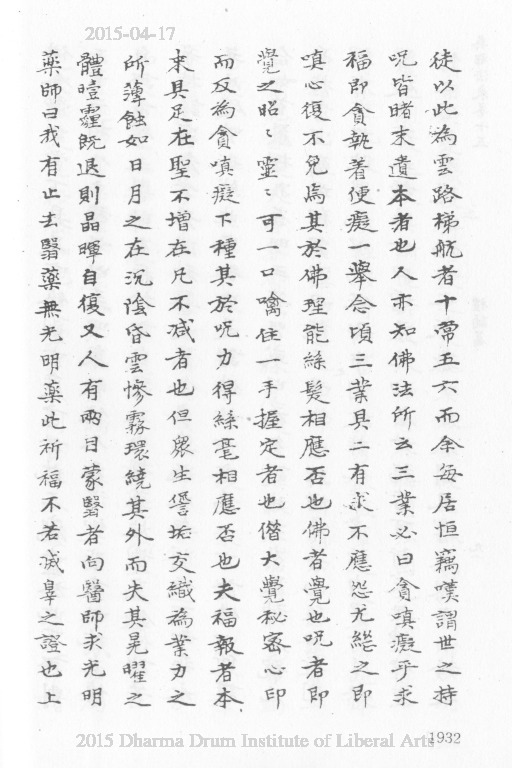 2015-04-17
徒以此為雲路梯航者十常五六而余每居恒竊嘆謂世之持
呪皆睹末遺本者也人亦知佛法所云三業必曰貪嗔癡乎求
福即貪執着便癡一舉念頃三業具二有求不應怨尤繼之即
嗔心復不免焉其於佛理能絲髮相應否也佛者覺也呪者即
覺之昭〻靈〻可一口噙住一手握定者也偕大覺秘密心印
而反為貪嗔癡下種其於呪力得絲毫相應否也夫福報者本
来具足在聖不增在凡不减者也但眾生愆垢交織為業力之
所薄蝕如日月之在沉陰昏雲慘霧環繞其外而失其晃曜之
體曀霾既退則晶暉自復又人有兩目蒙翳者向醫師求光明
藥師曰我有止去翳藥無光明藥此祈福不若滅辠之證也上
1932
2015 Dharma Drum Institute of Liberal Arts